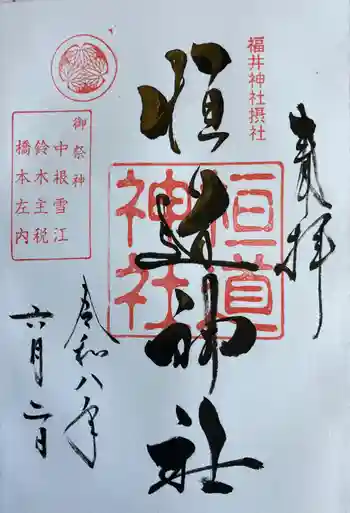 福井神社摂社
奉拝
恒道神社
恒道神社
令和八年
六月二日
御祭神
中根雪江
鈴木主税
橋本左内